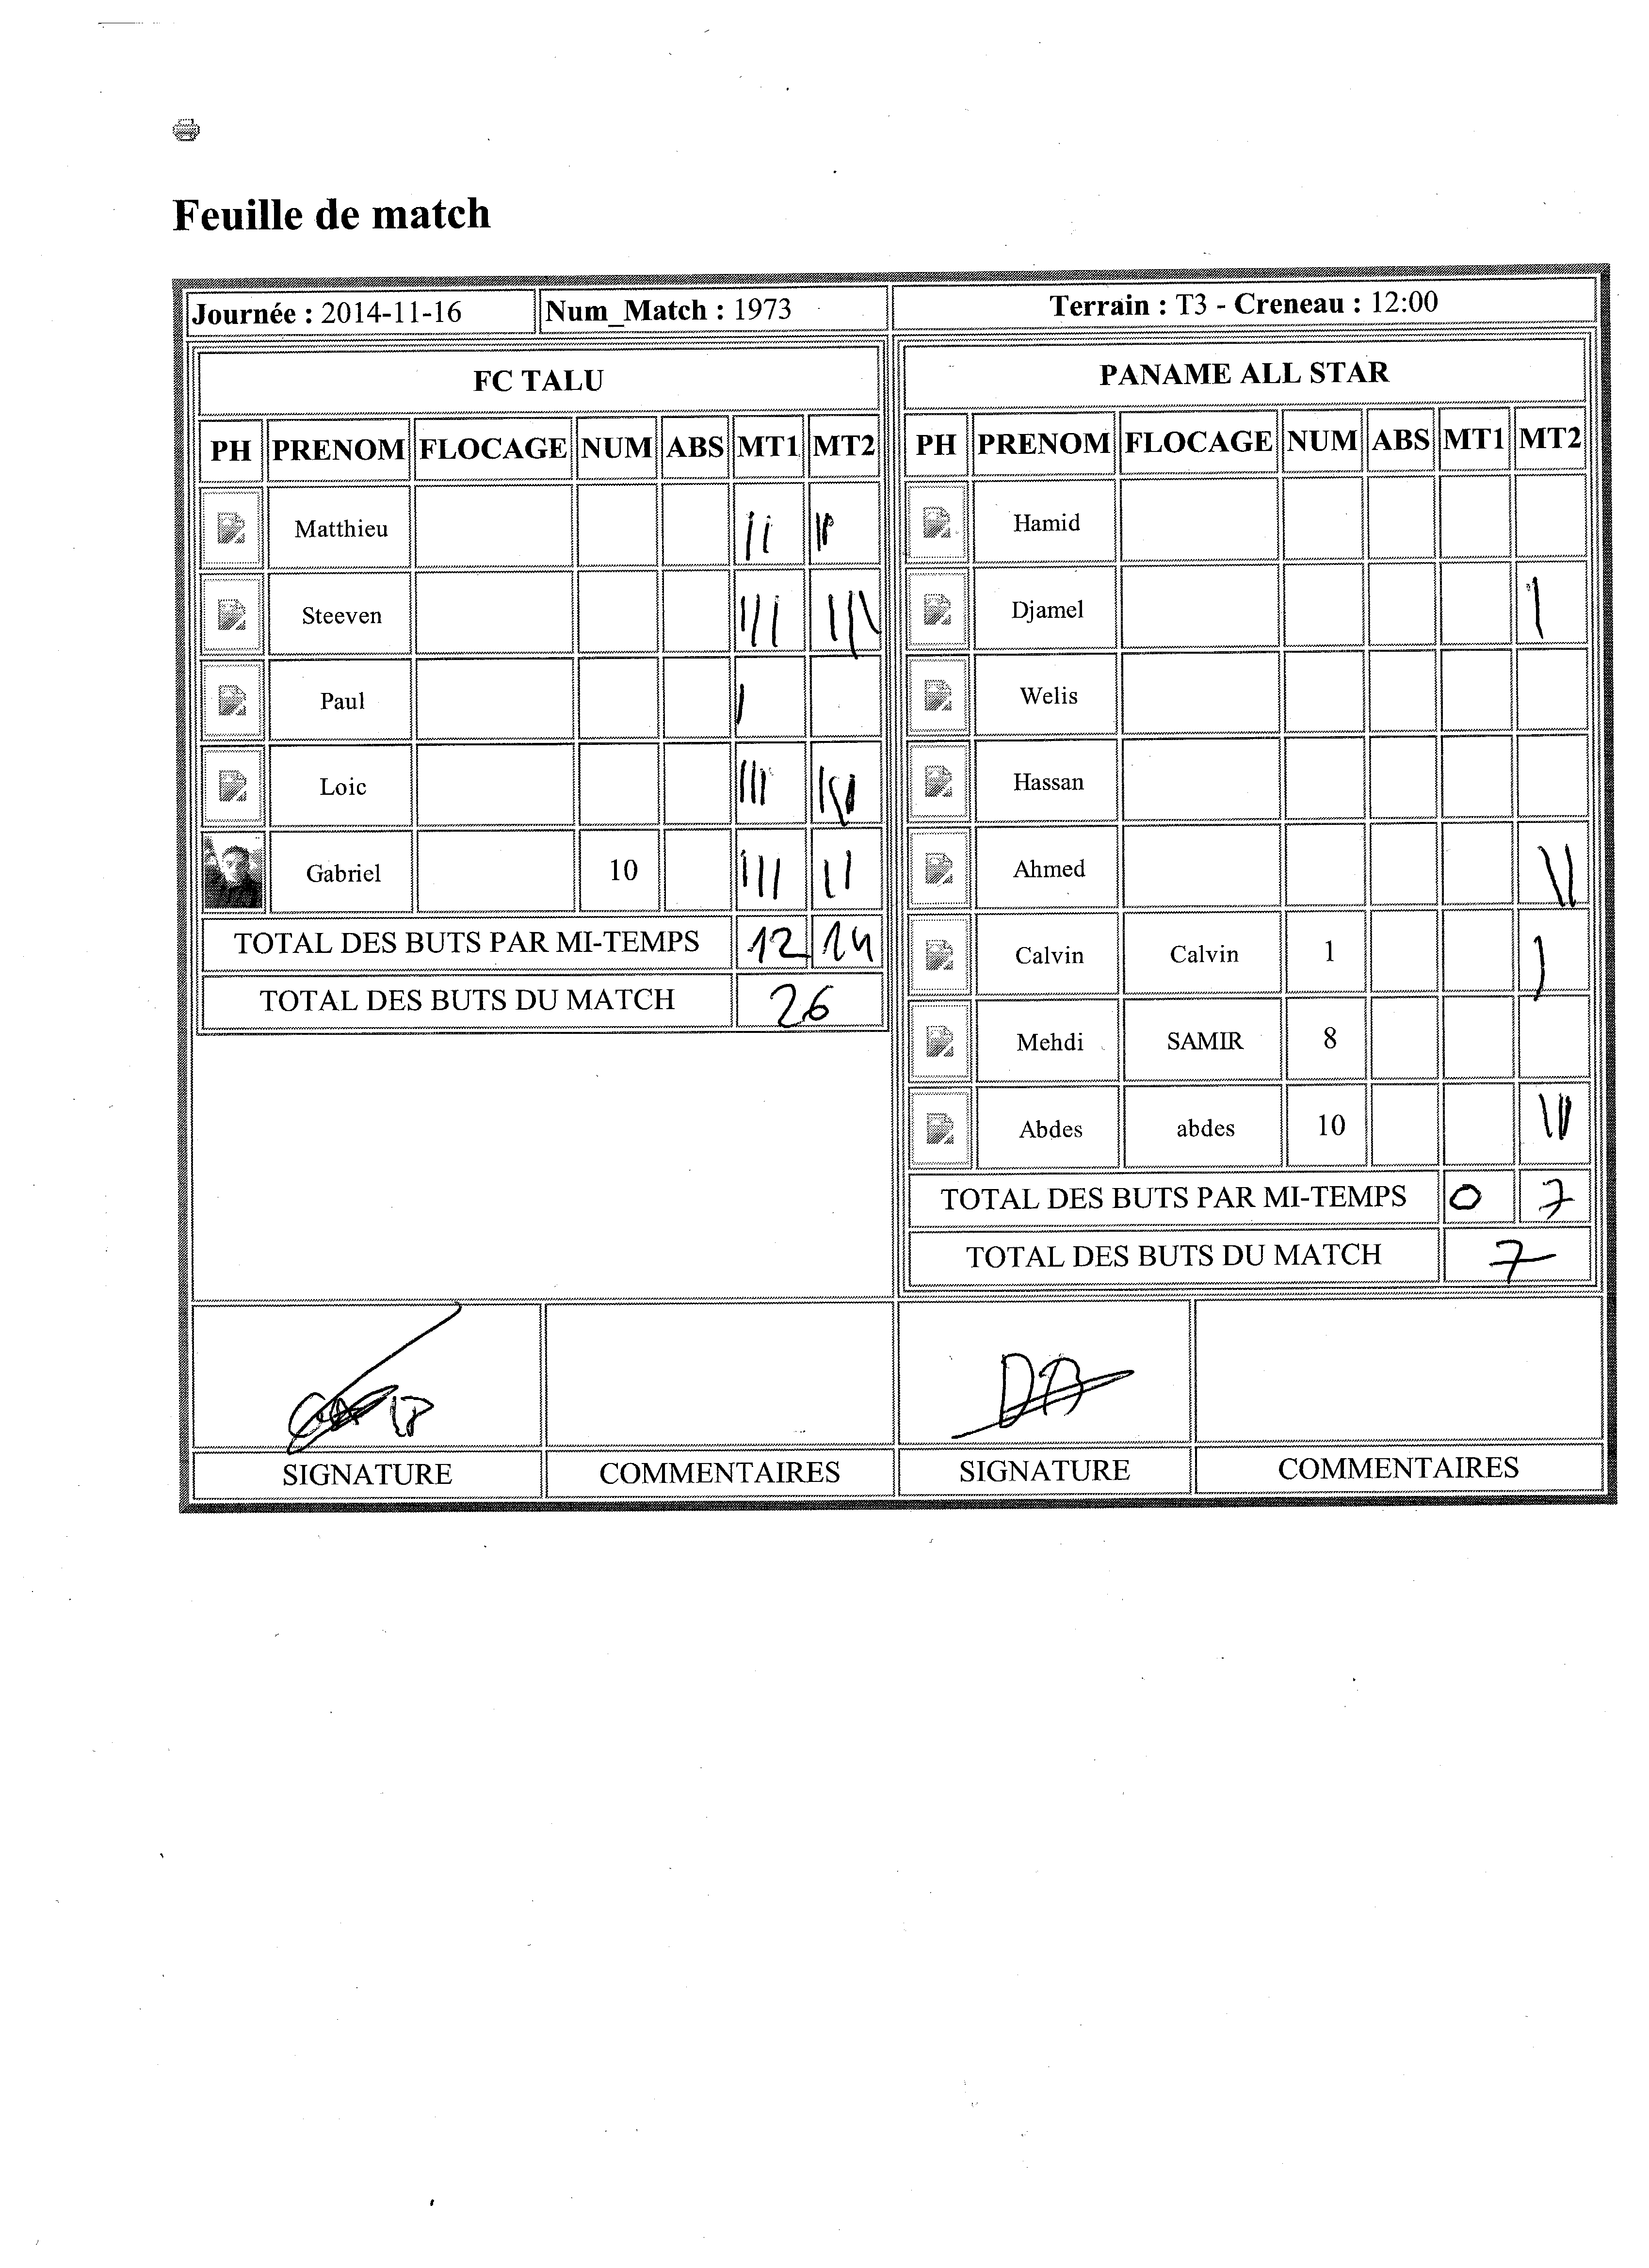 Feuille de match
Journée : 2014-11-16 Num_Match : 1973 Terrain : T3 - Creneau : 12:00
FC TALU
PH PRENOM FLOCAGE NUM ABS MT1 MT2
Matthieu
Steeven
Paul
Loic
Gabriel 10
TOTAL DES BUTS PAR MI-TEMPS 12 14
TOTAL DES BUTS DU MATCH 26
PANAME ALL STAR
PH PRENOM FLOCAGE NUM ABS MT1 MT2
Hamid
Djamel
Welis
Hassan
Ahmed
Calvin Calvin 1
Mehdi SAMIR 8
Abdes abdes 10
TOTAL DES BUTS PAR MI-TEMPS 0 7
TOTAL DES BUTS DU MATCH 7
SIGNATURE COMMENTAIRES SIGNATURE COMMENTAIRES